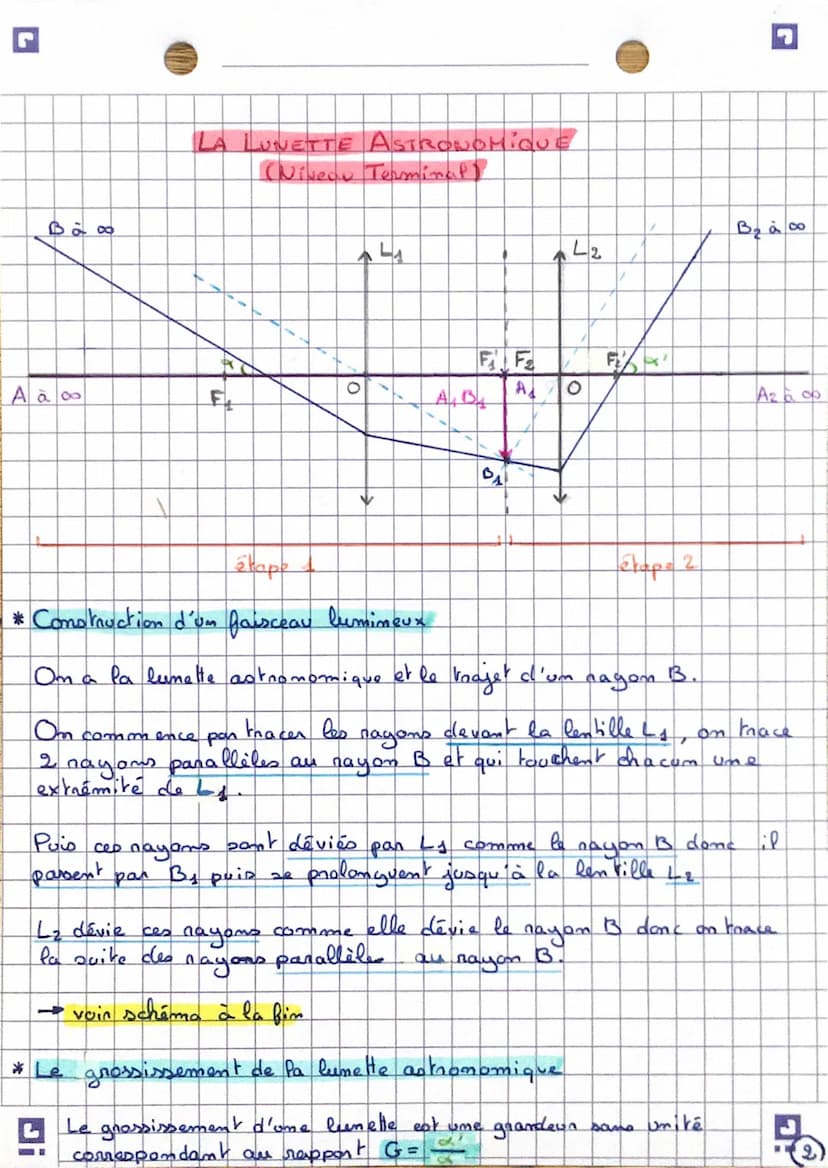 LA LUNETTE ASTRONOMIQUE
(Niveau Terminal)
B à ∞
L1
L2
B2 à ∞
α
F1' F2
F2' α'
A à ∞
F1
O
A1B1
A1
O
A2 à ∞
B1
étape 1
étape 2
* Construction d'un faisceau lumineux
On a la lunette astronomique et le trajet d'un rayon B.
On commence par tracer les rayons devant la lentille L1, on trace
2 rayons parallèles au rayon B et qui touchent chacun une
extrémité de L1.
Puis ces rayons sont déviés par L1 comme le rayon B donc il
passent par B1 puis se prolonguent jusqu'à la lentille L2
L2 dévie ces rayons comme elle dévie le rayon B donc on trace
la suite des rayons parallèle au rayon B.
→ voir schéma à la fin
* Le grossissement de la lunette astronomique
Le grossissement d'une lunette est une grandeur sans unité
correspondant au rapport G = α'/α
2